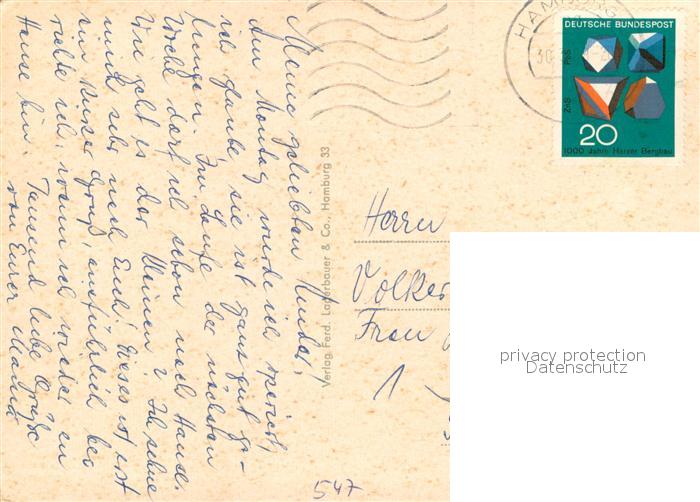 Meine geliebten Kinder,
Am Montag wurde ich operiert,
ich glaube sie ist ganz gut ge-
lungen. Im Laufe der nächsten
Woche darf ich schon nach Hause.
Wie geht es der Kleinen? Ich sehne
mich sehr nach Euch! Dieses ist erst
ein kurzer Gruß, ausführlich be-
richte ich, wenn ich wieder zu
Hause bin. Tausend liebe Grüße
von Eurer
Verlag Ferd. Lagerbauer & Co., Hamburg 33
HAMBURG
30.
DEUTSCHE BUNDESPOST
PbS
ZnS
20
1000 Jahre Harzer Bergbau
Herrn
Volker
Frau
1
547
privacy protection
Datenschutz